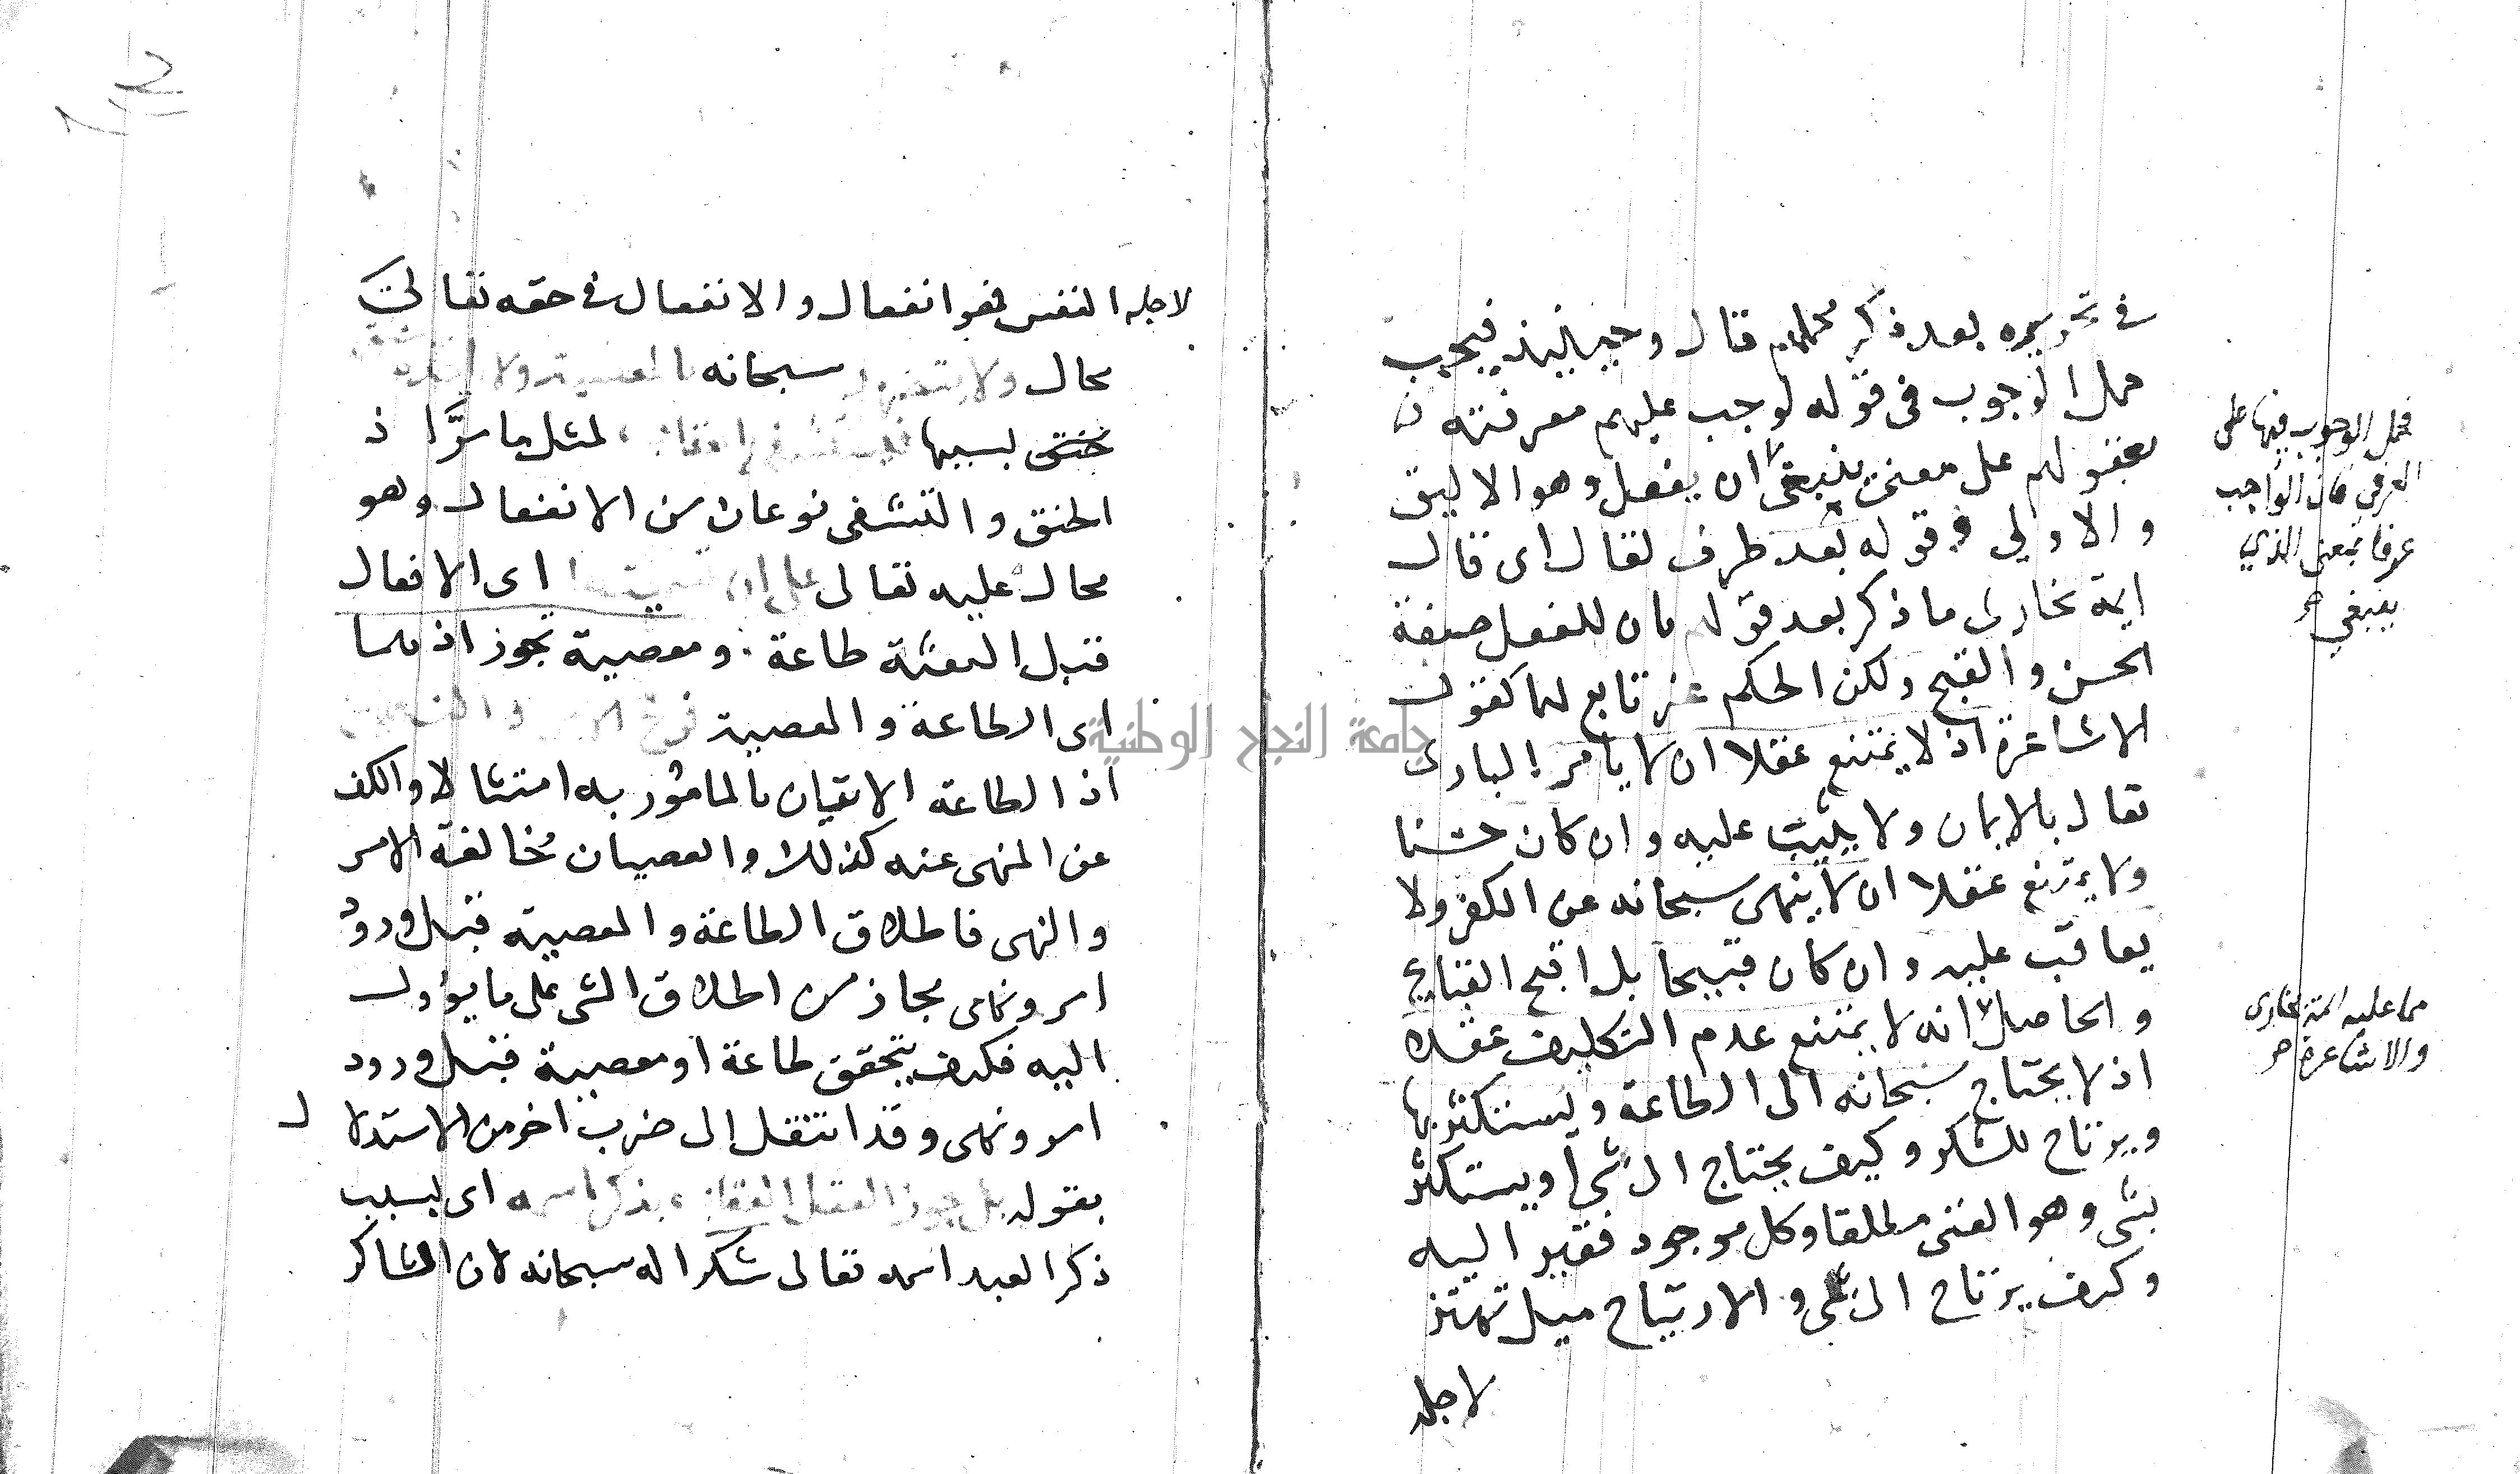 في تحريره بعد ذكر محملهم قال وحينئذ فيجب
حمل الوجوب في قوله لوجب عليهم معرفته
بعقولهم على معنى ينبغي ان يفعل وهو الاليق
والاولى وقوله بعد ظرف لقال اى قال
ايمة بخارى ما ذكر بعد قولهم بان للفعل صفة
الحسن والقبح ولكن الحكم غير تابع لهما كقول
الاشاعرة اذ لا يمتنع عقلا ان لا يأمر البارى
تعالى بالايمان ولا يثيب عليه وان كان حسنا
ولا يمتنع عقلا ان لا ينهى سبحانه عن الكفر ولا
يعاقب عليه وان كان قبيحا بل اقبح القبايح
والحاصل انه لا يمتنع عدم التكليف عقلا
اذ لا يحتاج سبحانه الى الطاعة وليستكثر بها
ويرتاح للشكر وكيف يحتاج الى شي او يستكثر
بشى وهو الغنى مطلقا وكل موجود فقير اليه
وكيف يرتاح الى شى والارتياح ميل تهتز
لاجله
فحمل الوجوب فيها على
العرفى فان الواجب
عرفا بمعنى الذي
ينبغي
مما عليه ائمة بخارى
والاشاعرة
جامعة النجاح الوطنية
لاجله النفس فهو انفعال والانفعال في حقه تعالى
محال ولا يتضرر سبحانه بالمعصية ولا
بسببها لمثل ما مرَّ اذ
الحنق والتشفى نوعان من الانفعال وهو
محال عليه تعالى على ان اى الافعال
قبل البعثة طاعة ومعصية تجوز اذ هما
اى الطاعة والمعصية فرع الامر والنهى
اذ الطاعة الاتيان بالمامور به امتثالا والكف
عن المنهى عنه كذلك والعصيان مخالفة الامر
والنهى فاطلاق الطاعة والمعصية قبل ورود
امر ونهى مجاز من اطلاق الشى على ما يؤول
اليه فكيف يتحقق طاعة او معصية قبل ورود
امر ونهى وقد انتقل الى ضرب اخر من الاستدلال
بقوله بل يجوز العقل العقاب بذكر اسمه اى بسبب
ذكر العبد اسمه تعالى شكرا له سبحانه لان الشاكر